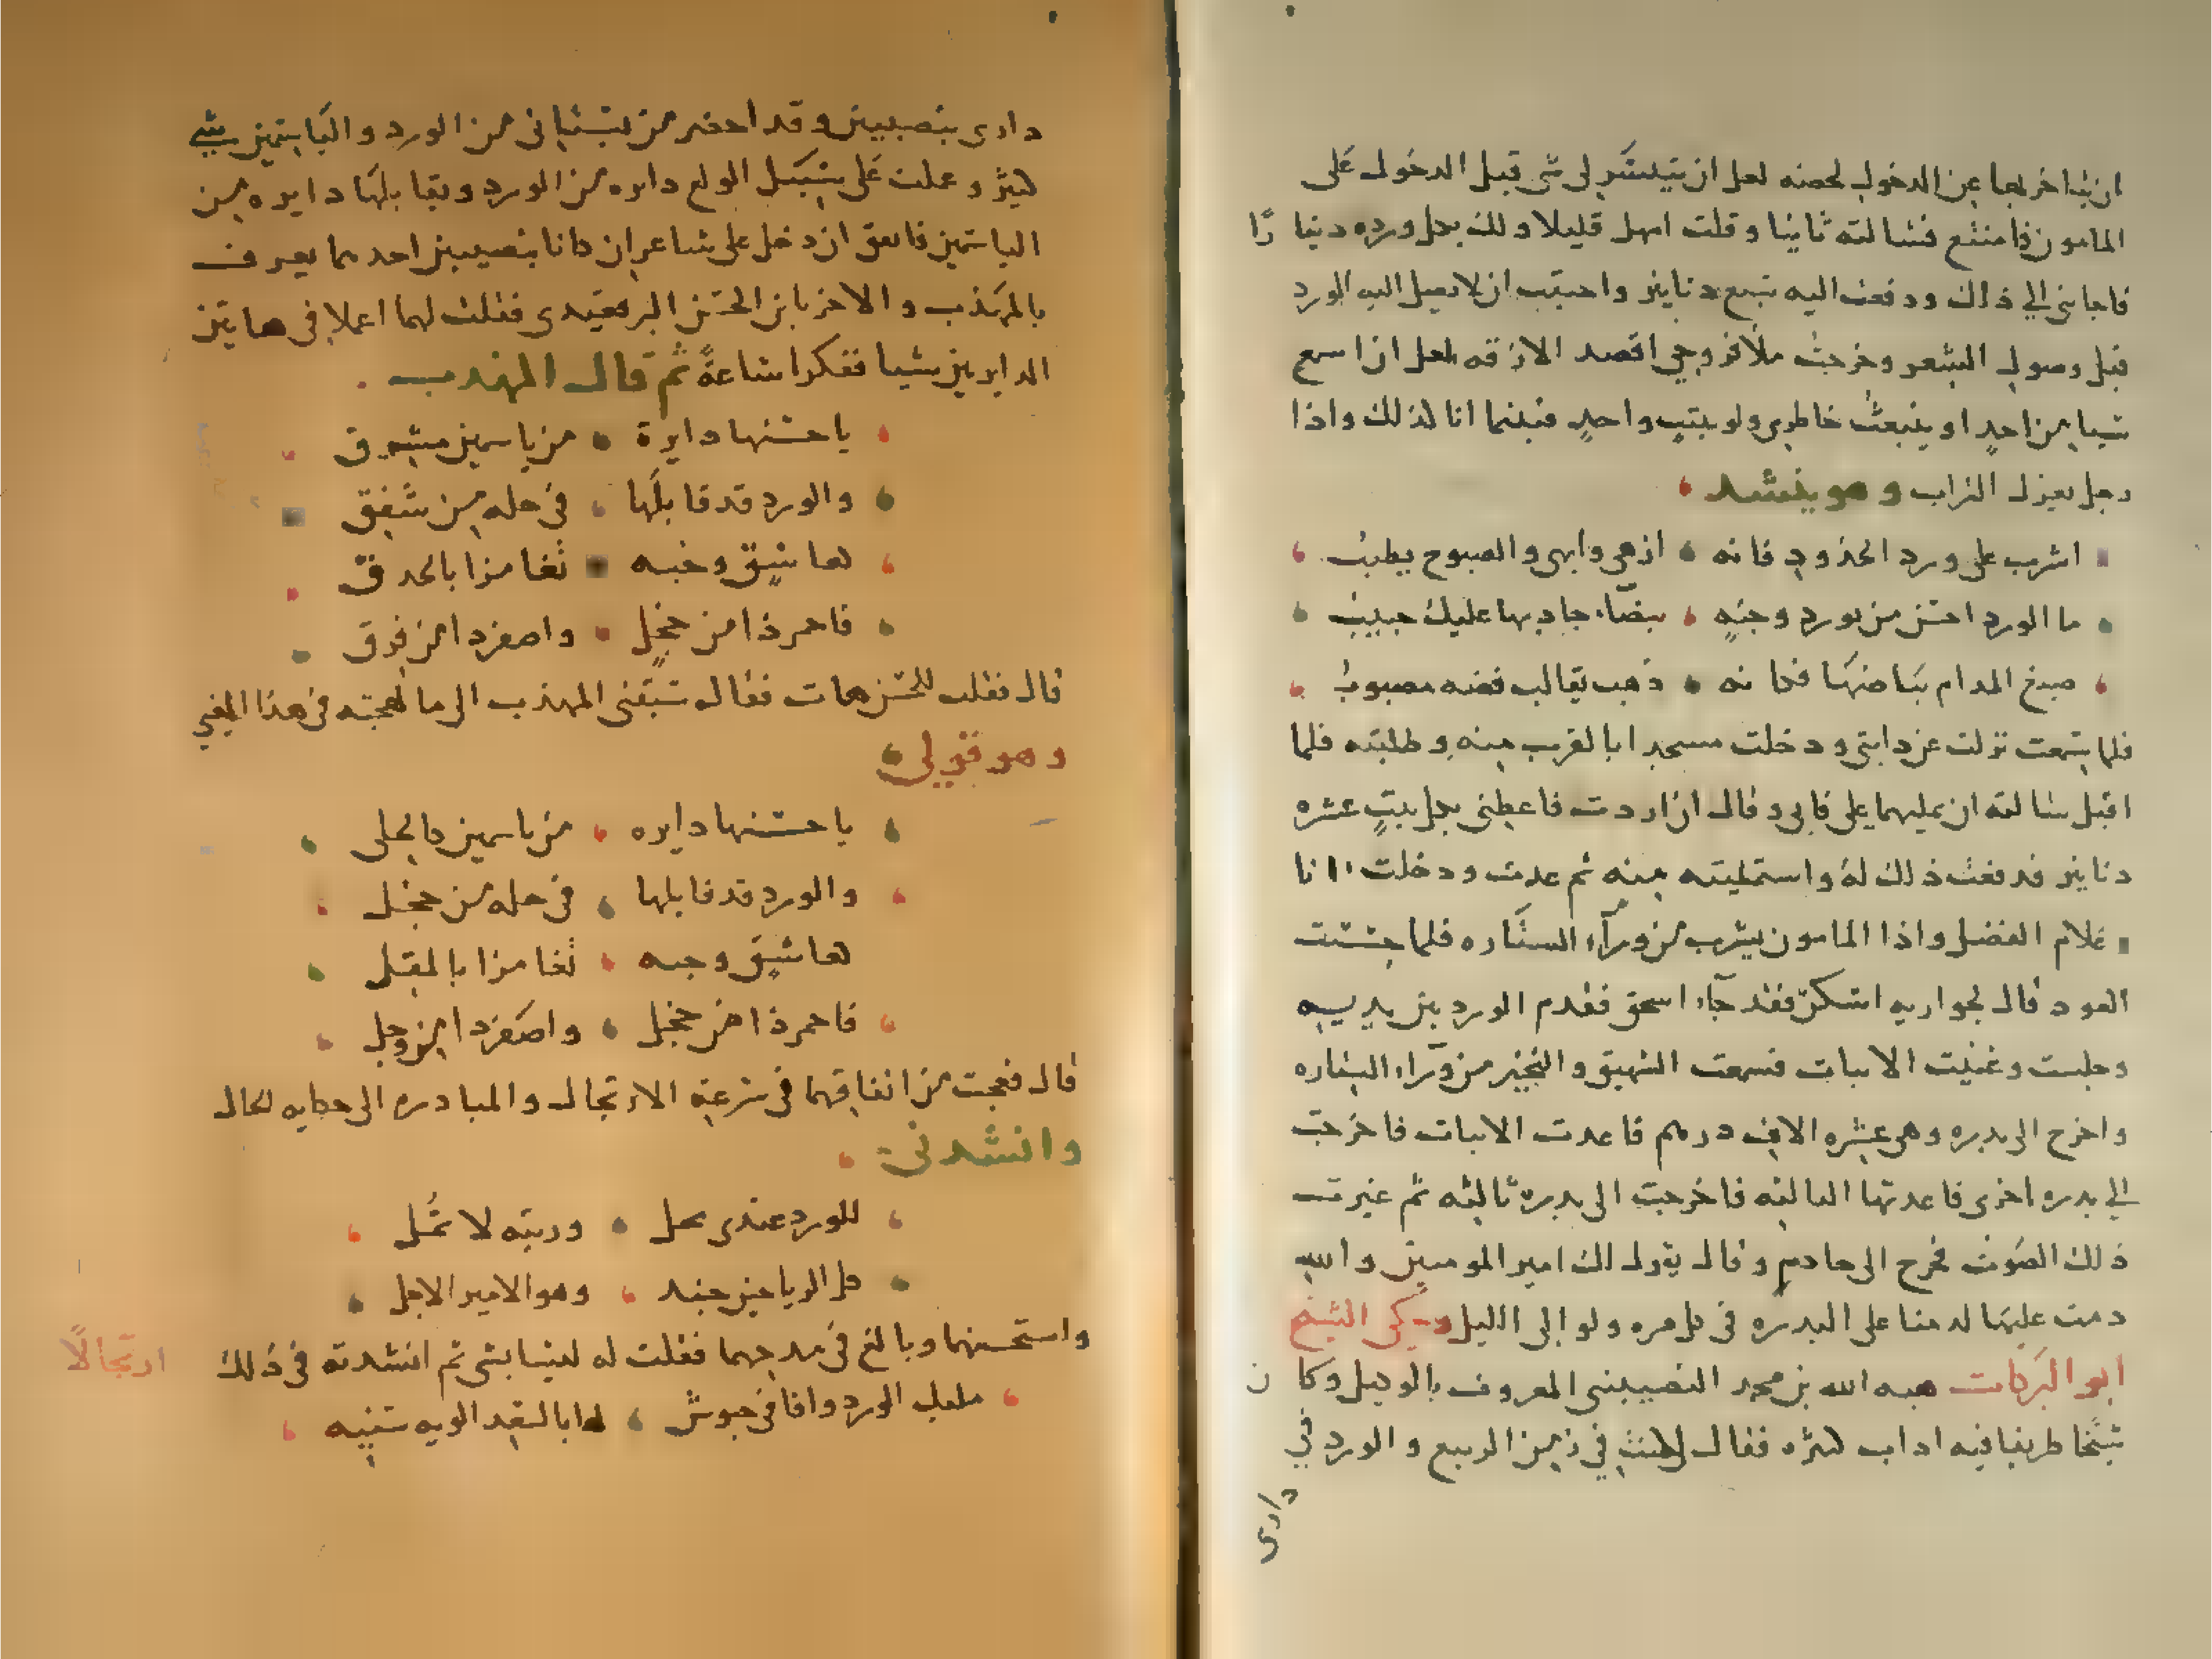 ان يتاخر بها عن الدخول لحصنه لعل ان يتيسر لي شي قبل الدخول على
المامون فامتنع فسالته ثانيا وقلت امهل قليلا ولك بكل ورده دينارًا
فاجابني الي ذلك ودفعت اليه سبع دنانير واحببت ان لا يصل اليه الورد
قبل وصول الشعر وخرجت ملافروجي اقصد الازقه لعل ان اسمع
شيا من احدٍ او ينبعث خاطري ولو ببيتٍ واحدٍ فبينما انا كذلك واذا
رجل يغزل التراب وهو ينشد
اشرب على ورد الخدود فانه ازهى وابهى والصبوح يطيب
ما الورد احسن من تورد وجنةٍ بيضاء جاد بها عليك حبيب
صبغ المدام بياضها فكانه ذهب بقالب فضه مصبوب
فلما سمعت نزلت عن دابتي ودخلت مسجدا بالقرب منه وطلبته فلما
اقبل سالته ان يمليهما علي فابى وقال ان اردت فاعطني بكل بيتٍ عشره
دنانير فدفعت ذلك له واستمليته منه ثم عدت ودخلت انا
غلام الفضل واذا المامون يشرب من وراء الستاره فلما جسست
العود قال لجواريه اسكن فقد جاء اسحق فقدم الورد بين يديه
وجلست وغنيت الابيات فسمعت الشهيق والنخير من وراء الستاره
واخرج الى بدره وهي عشره الاف درهم فاعدت الابيات فاخرجت
الي بدره اخرى فاعدتها الثالثه فاخرجت الى بدره ثالثه ثم غيرت
ذلك الصوت فخرج الى خادم وقال يقول لك امير المومنين والله
دمت عليها لدمنا على البدره في كل مره ولو الى الليل وحكى الشيخ
ابو البركات هبه الله بن محمد النصيبيني المعروف بالوكيل وكان
شيخا ظريفا فيه اداب كثره فقال كنت في زمن الربيع والورد في
دارى
دارى بنصيبين وقد احضر من بستاني من الورد والياسمين شي
كثير وعملت على شكل الولع دايره من الورد وتقابلها دايره من
الياسمين فاتفق ان دخل على شاعران كانا بنصيبين احدهما يعرف
بالمهذب والاخر بابن الحسن البرقعيدى فقلت لهما اعملا في هاتين
الدايرتين شيا ففكرا ساعةً ثم قال المهذب
يا حسنها دايرة من ياسمين مشرق
والورد قد قابلها في حله من شفق
كعاشق وحبه تغامزا بالحدق
فاحمر ذا من خجل واصفر ذا من فرق
قال فقلت للحسن هات فقال سبقني المهذب الى ما لمحته في هذا المعنى
وهو قولي
يا حسنها دايره من ياسمين كالحلى
والورد قد قابلها في حله من خجل
كعاشق وحبه تغامزا بالمقل
فاحمر ذا من خجل واصفر ذا من وجل
قال فعجبت من اتفاقهما في سرعة الارتجال والمبادره الى حكايه الحال
وانشدني
للورد عندى محل ورتبته لا تمل
كل الرياحين جند وهو الامير الاجل
واستحسنهما وبالغ في مدحهما فقلت له ليسا بشي ثم انشدته في ذلك ارتجالًا
مليك الورد وافا في جيوش